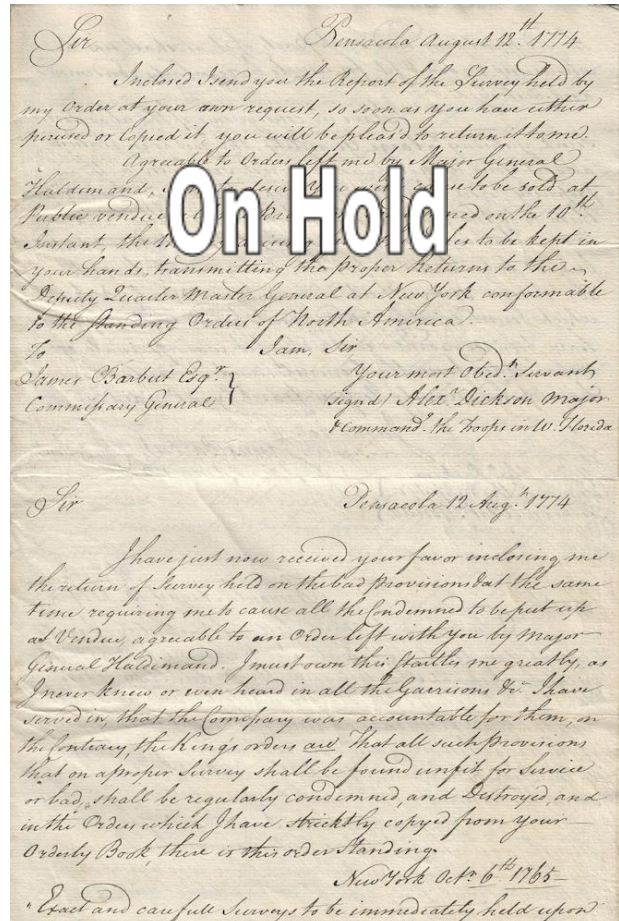 Sir Pensacola August 12.th 1774
Inclosed I send you the Report of the Survey held by
my Order at your own request, so soon as you have either
perused or Copied it, you will be pleas'd to return it to me.
Agreable to Orders left me by Major General
Haldimand, to be sold at
Public vendue on the 10th
Instant, the to be kept in
your hands, transmitting the proper Returns to the
Deputy Quarter Master General at New York conformable
to the Standing Orders of North America.
To I am, Sir
James Barbut Esqr. Your most Obedt. Servant
Commissary General signd Alexr. Dickson Major
& Commandg. the Troops in W. Florida
On Hold
Sir Pensacola 12 Augt. 1774
I have just now received your favor inclosing me
the return of Survey held on the bad provisions & at the same
time requiring me to cause all the Condemned to be put up
at Vendue, agreable to an Order left with You by Major
General Haldimand. I must own this startles me greatly, as
I never knew or even heard in all the Garrisons &c. I have
served in, that the Comissary was accountable for them, on
the Contrary, the King's orders are That all such provisions
that on a proper Survey shall be found unfit for Service
or bad, shall be regularly condemned, and Destroyed, and
in the Orders which I have stricktly copyed from your
Orderly Book, there is this order Standing.
New York Octr. 6th 1765
"Exact and carefull Surveys to be immediately held upon